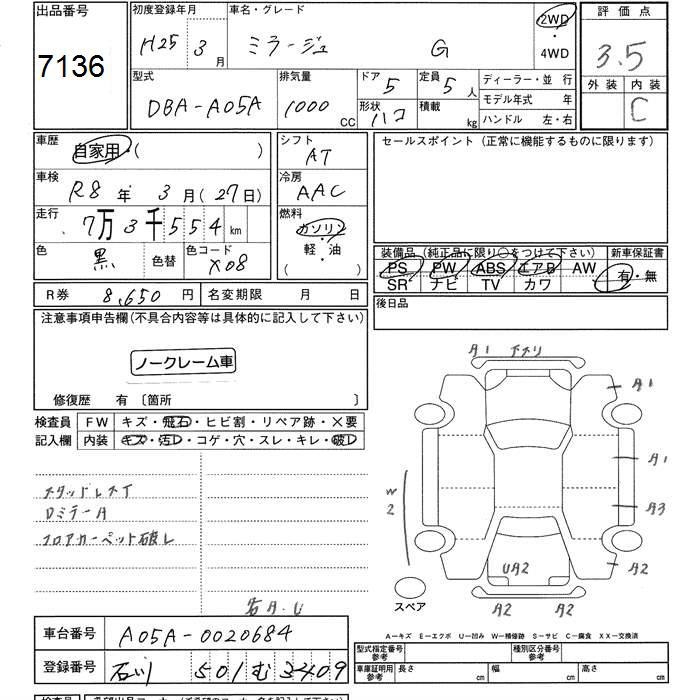 出品番号
7136
初度登録年月 車名・グレード 2WD 評価点
H25 3月 ミラージュ G 4WD 3.5
型式 排気量 ドア 定員 ディーラー・並行 外装 内装
DBA-A05A 1000 CC 5 5人 モデル年式 年 C
形状 ハコ 積載 kg ハンドル 左・右
車歴 自家用・( ) シフト AT セールスポイント (正常に機能するものに限ります)
車検 R8年 3月(27日) 冷房 AAC
走行 7万3千554km 燃料 ガソリン・軽・油 ( )
色 黒 色替 色コード X08
装備品 (純正品に限り○をつけて下さい) 新車保証書
PS PW ABS エアB AW 有・無
SR ナビ TV カワ
R券 8,650円 名変期限 月 日 後日品
注意事項申告欄(不具合内容等は具体的に記入して下さい)
ノークレーム車
修復歴 有 〔箇所 〕
検査員 FW キズ・飛石・ヒビ割・リペア跡・×要
記入欄 内装 キズ・汚レ・コゲ・穴・スレ・キレ・破レ
スタッドレスタイ
フロアカーペット破レ
A1
A1
A1
A3
W2
UA2
A2
A2 A2
スペア
A-キズ E-エクボ U-凹み W-補修跡 S-サビ C-腐食 XX-交換済
車台番号 A05A-0020684
登録番号 石川 501 む 3409
型式指定番号 参考 種別区分番号 参考
車庫証明用 参考 長さ cm 幅 cm 高さ cm